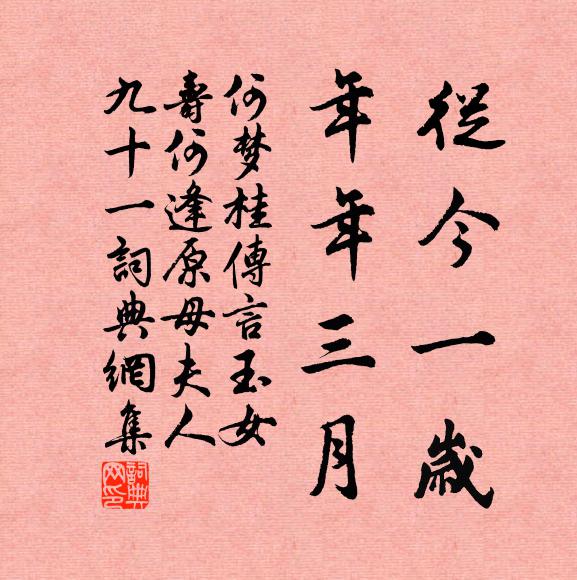 從今一歲
年年三月
何梦桂傳言玉女
壽何逢原母夫人
九十一詞典網集
詞典网印